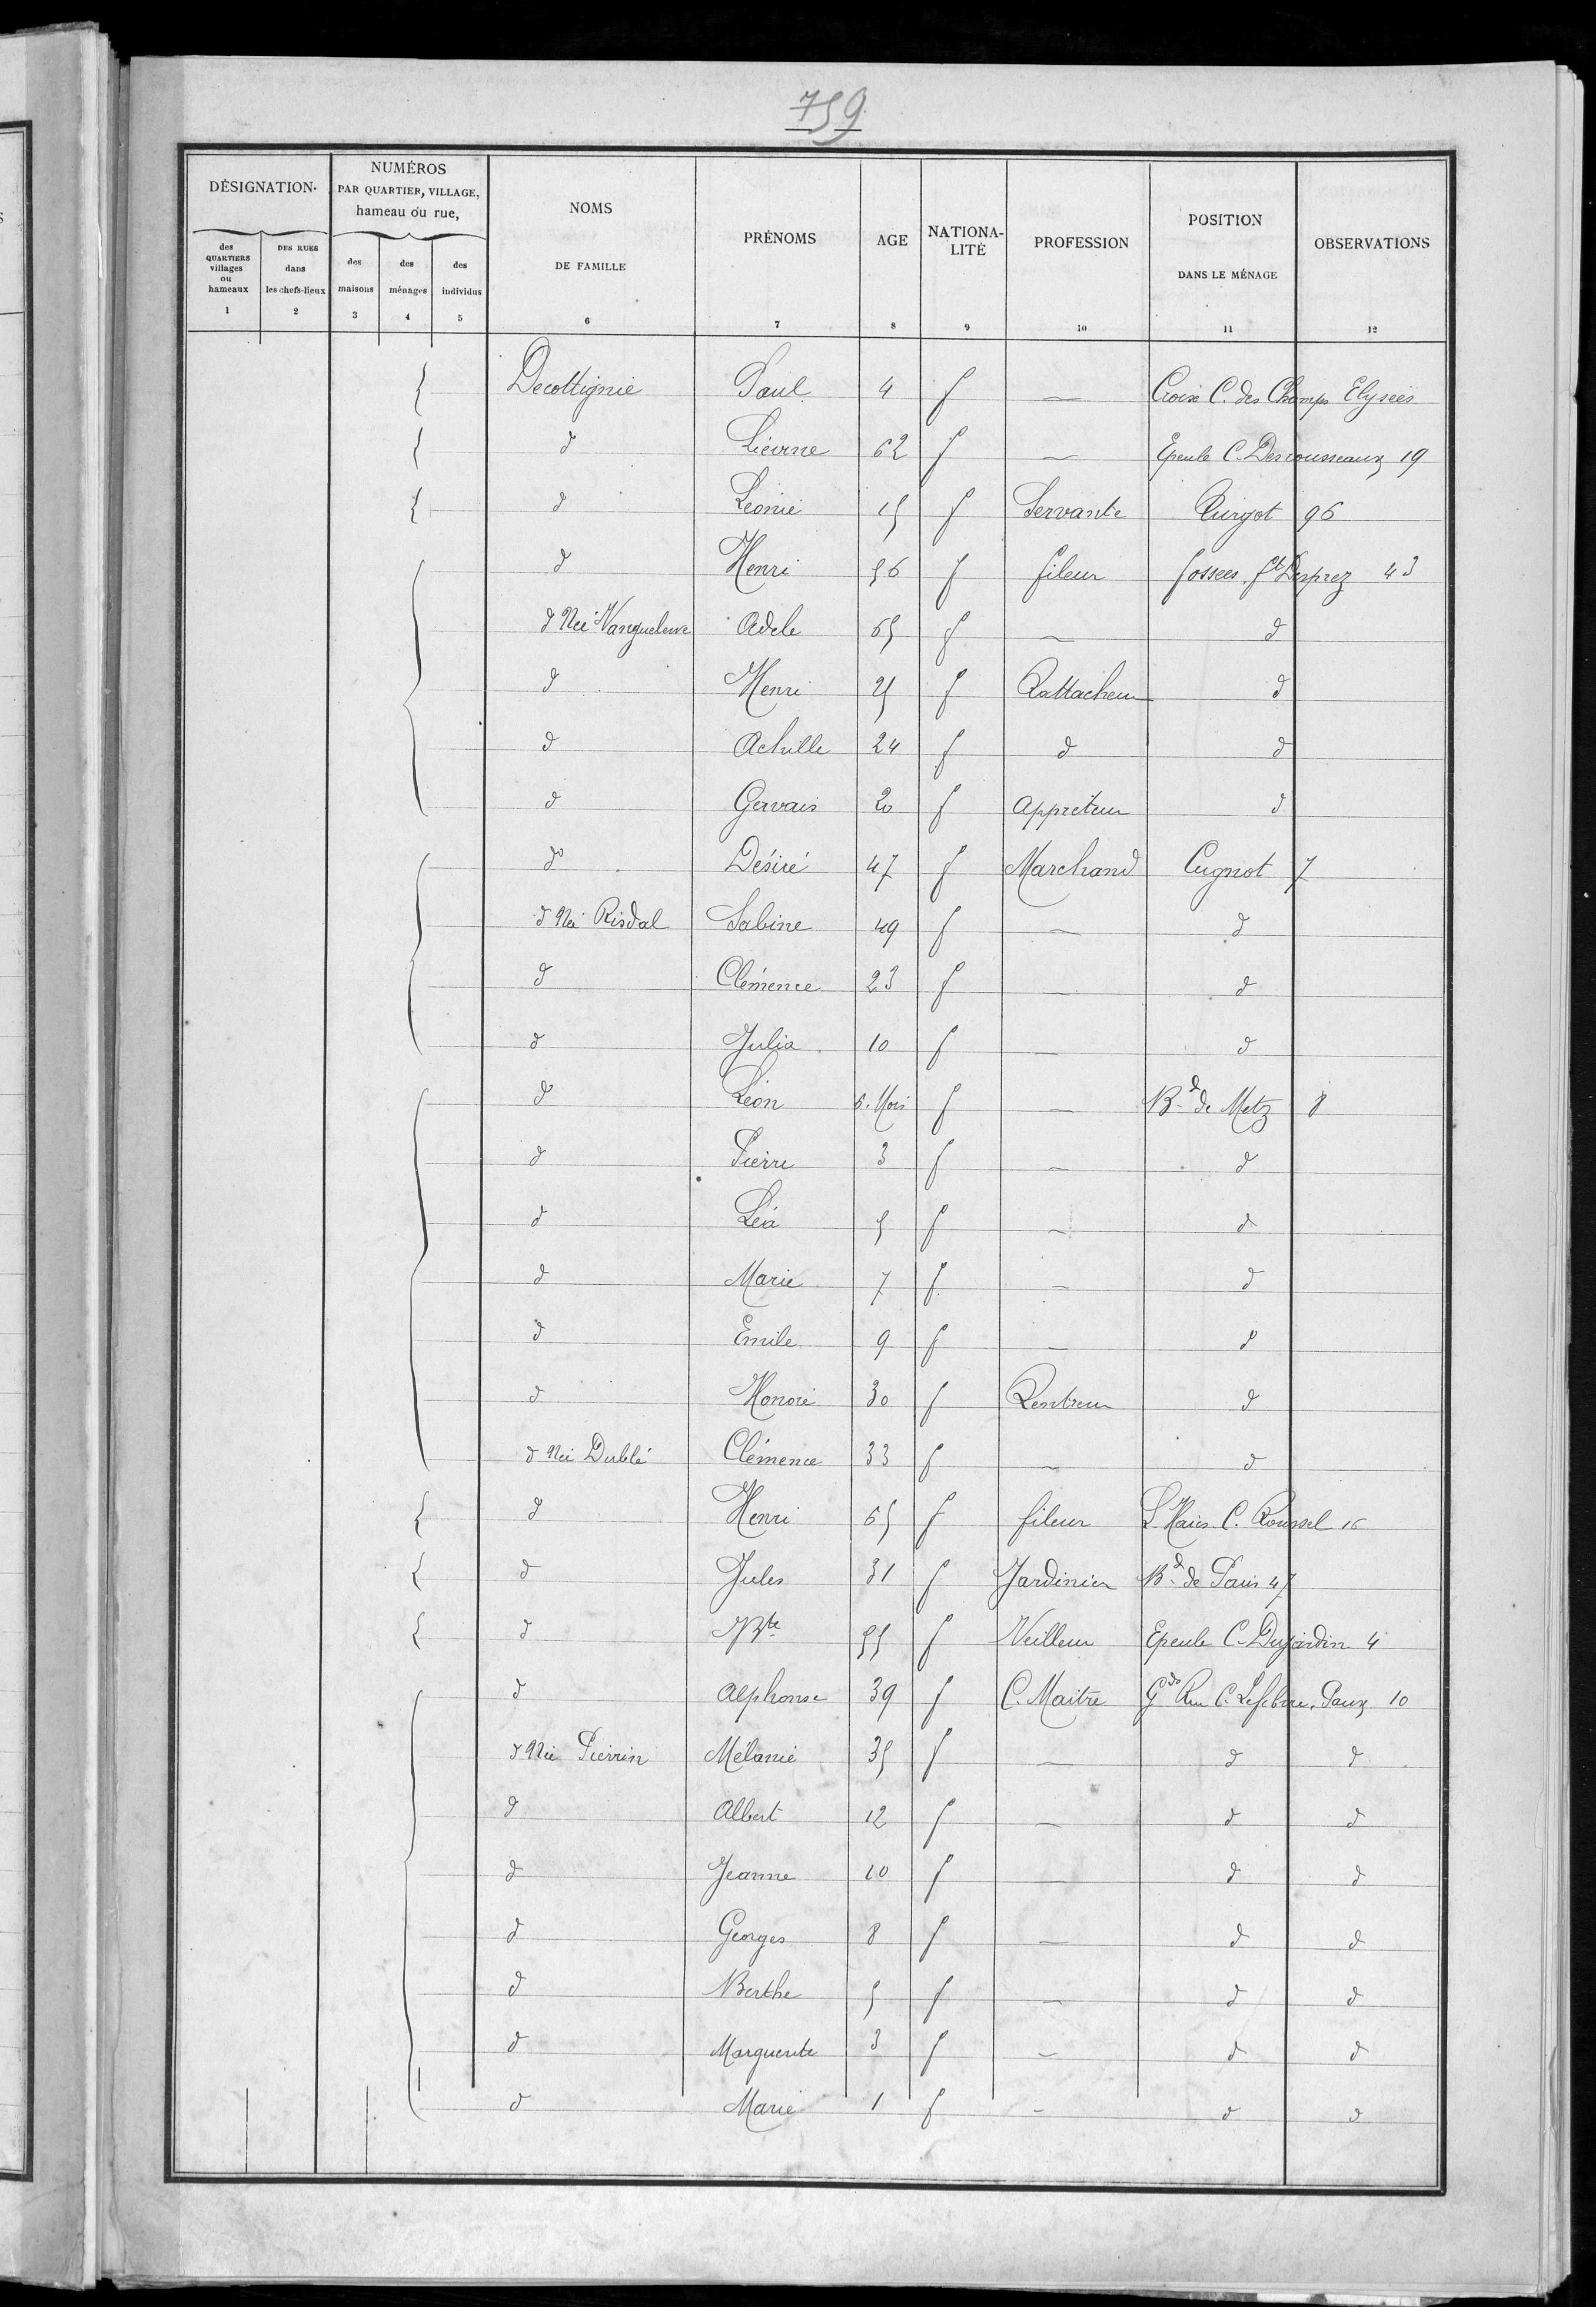 759
DÉSIGNATION
NUMÉROS PAR QUARTIER, VILLAGE, hameau ou rue,
NOMS DE FAMILLE
PRÉNOMS
AGE
NATIONA-LITÉ
PROFESSION
POSITION DANS LE MÉNAGE
OBSERVATIONS
des QUARTIERS villages ou hameaux
DES RUES dans les chefs-lieux
des maisons
des ménages
des individus
1 2 3 4 5 6 7 8 9 10 11 12
Decottignie Paul 4 f — Croix C. des Champs Elysées
d 62 f — Epeule C. Desrousseaux 19
d Léonie 15 f Servante Turgot 96
d Henri 56 f fileur fossees f^t Desprez 43
d Née Adele 65 f — d
d Henri 25 f Rattacheur d
d Achille 24 f d d
d Gervais 20 f Appreteur d
d° Désiré 47 f Marchand Cugnot 7
d Née Risdal Sabine 49 f — d
d Clémence 23 f — d
d Julia 10 f — d
d° Léon 6. Mois f — B^d de Metz 8
d Pierre 3 f — d
d Léa 5 f — d
d Marie 7 f — d
d Emile 9 f — d
d Honoré 30 f Rentreur d
d Née Dublé Clémence 33 f — d
d Henri 65 f fileur L. Haies C. Roussel 16
d Jules 31 f Jardinier B^d de Paris 47
d JB^te 55 f Veilleur Epeule C. Dujardin 4
d Alphonse 39 f C. Maitre G^de Rue C. Lefebvre. Paux 10
d Née Piérrin Mélanie 35 f — d d
d Albert 12 f — d d
d Jeanne 10 f — d d
d Georges 8 f — d d
d Berthe 5 f — d d
d Marguerite 3 f — d d
d Marie 1 f - d d